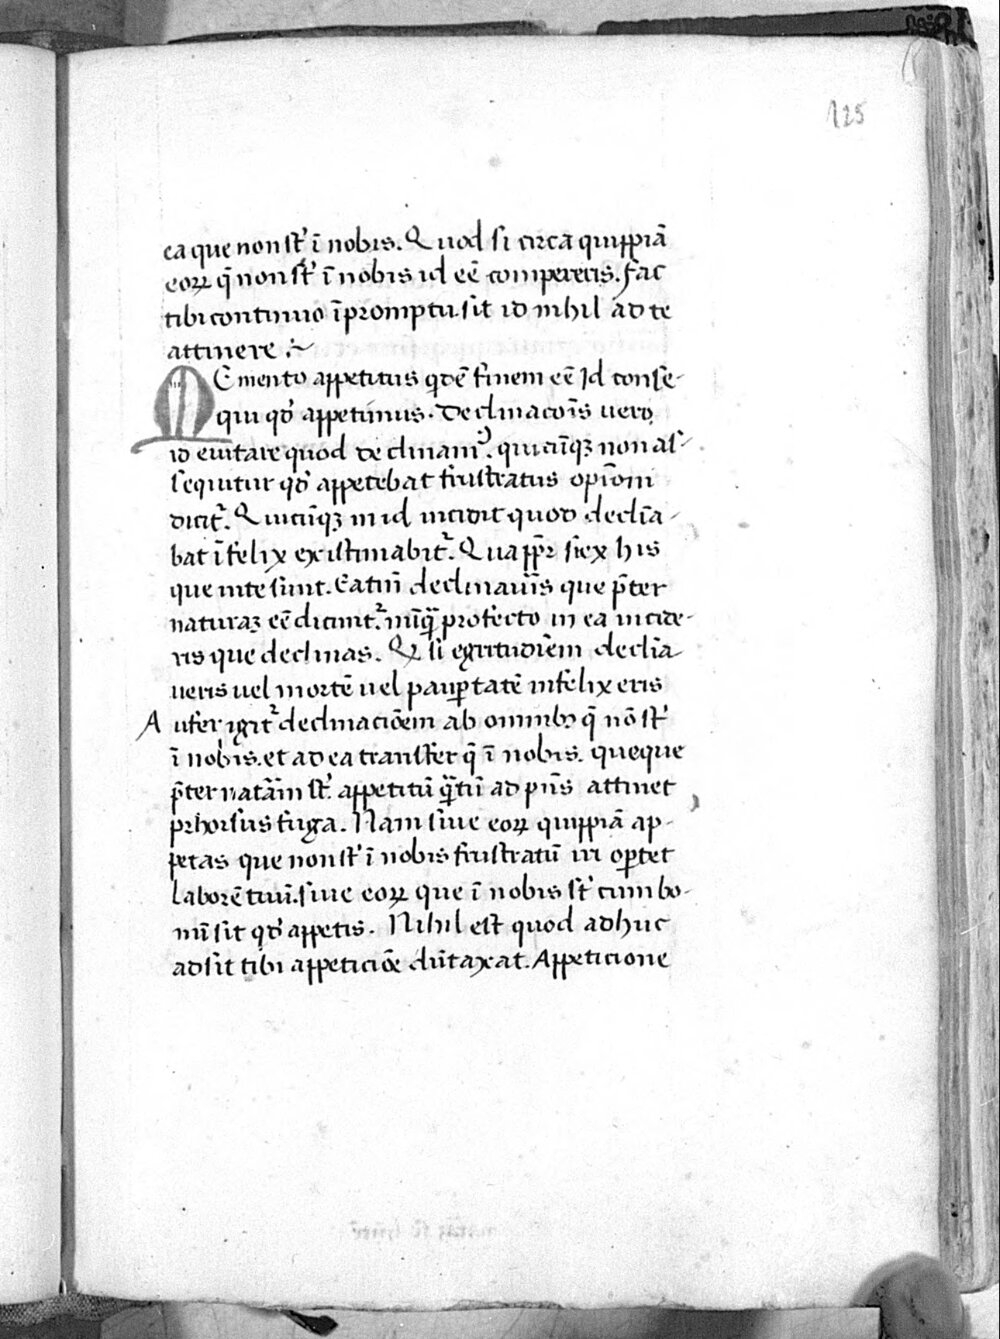 125
ea que non st' ī nobis. Quod si circa quippiā
eoꝝ q̄ non st' ī nobis id eē compereris. fac
tibi continuo ī promptu sit id nihil ad te
attinere
Memento appetitus qdē finem eē Id conse-
qui qd' appetimus. Declinacōis vero
id evitare quod declinam'. quicūqꝫ non as-
sequitur qd' appetebat frustratus opīoni
dicit'. Quicūqꝫ in id incidit quod declīa-
bat īfelix existimabit'. Quappr̄ si ex his
que in te sunt. Eatm̄ declinav̄is que p̄ter
naturaꝫ eē dicunt'. nūq̄ profecto in ea incide-
ris que declinas. Qꝫ si egritudīem declīa
veris vel mortē vel paup̄tatē infelix eris
Aufer igit' declinaciōem ab omnibꝫ q̄ nō st'
ī nobis. et ad ea transfer q̄ ī nobis. queque
p̄ter natā̄m st'. appetitū q̄tū ad pn̄s attinet
prhorsus fuga. Nam sive eoꝝ quippiā ap-
petas que non st' ī nobis frustratū iri op̄tet
laborē tuū. sive eoꝝ que ī nobis st' cum bo-
nū sit qd' appetis. Nihil est quod adhuc
adsit tibi appeticiōe dūtaxat. Appeticione